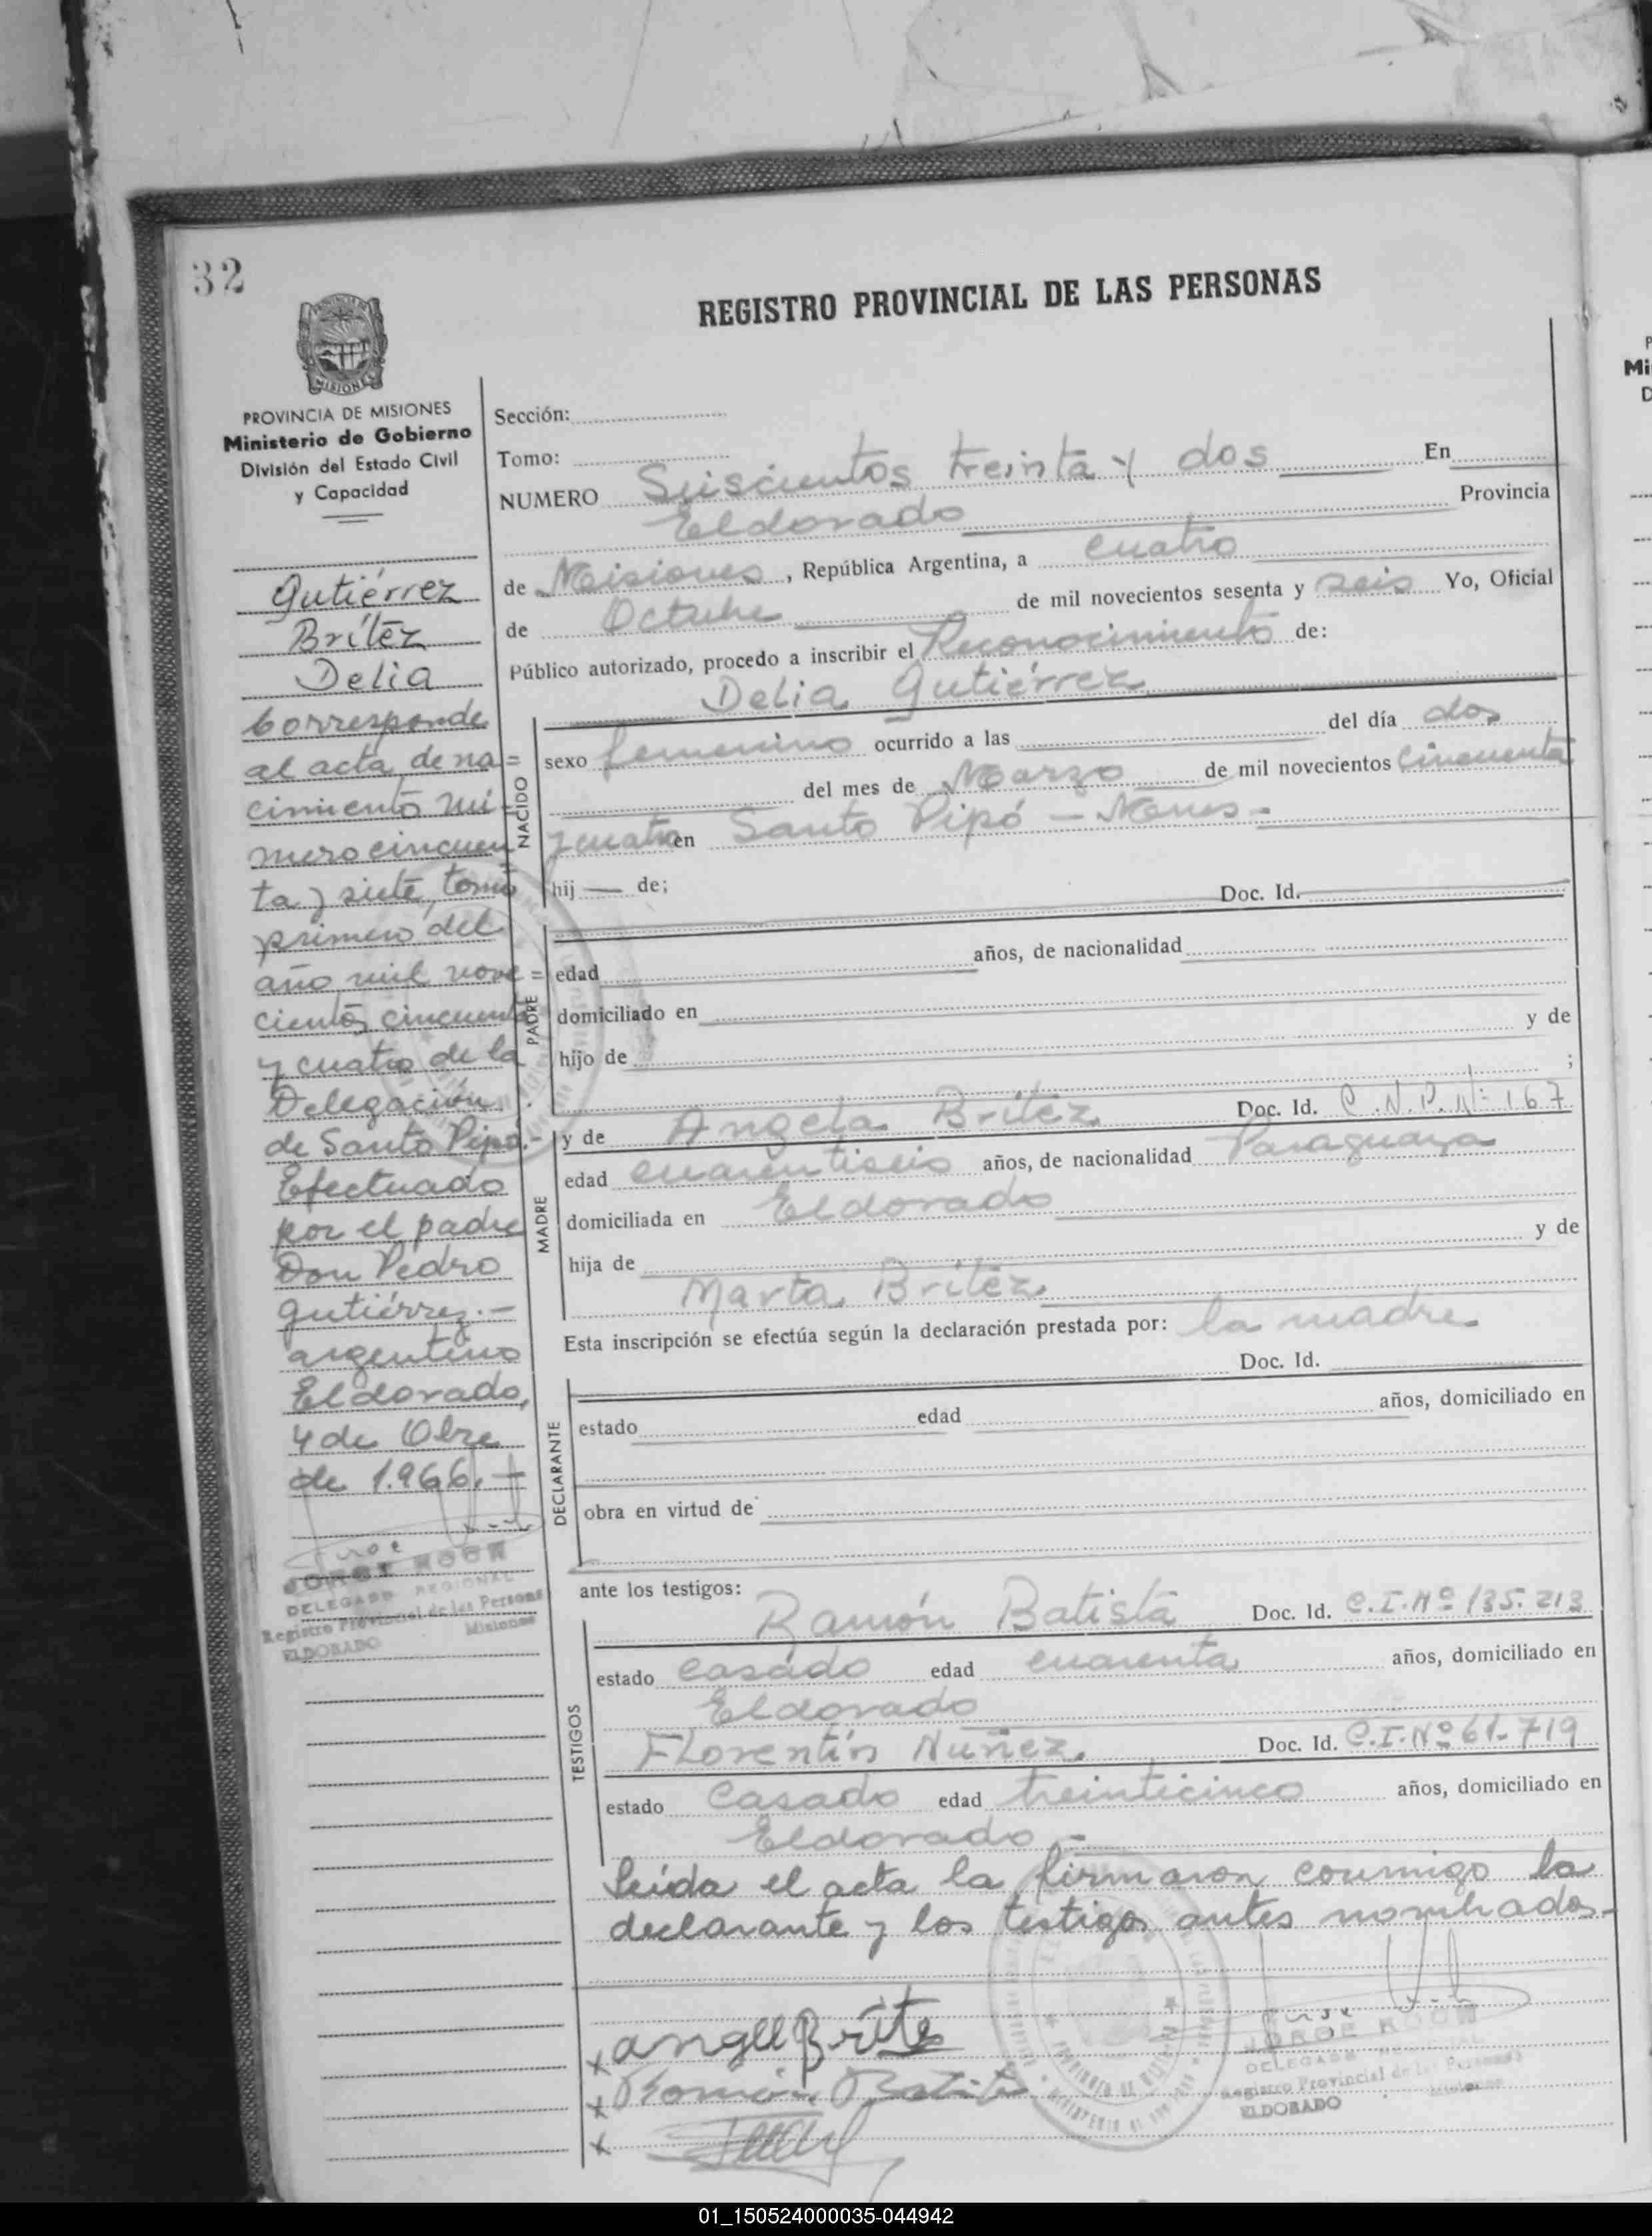 32
REGISTRO PROVINCIAL DE LAS PERSONAS
MISIONES
PROVINCIA DE MISIONES
Ministerio de Gobierno
División del Estado Civil
y Capacidad
Gutiérrez
Brítez
Delia
Corresponde
al acta de na=
cimiento nú-
mero cincuen
ta y siete, tomo
primero del
año mil nove=
cientos cincuenta
y cuatro de la
Delegación
de Santo Pipó.-
Efectuado
por el padre
Don Pedro
Gutiérrez.-
argentino
Eldorado,
4 de Obre
de 1.966.-
JORGE KOCH
DELEGADO REGIONAL
Registro Provincial de las Personas
ELDORADO Misiones
Sección:
Tomo:
NUMERO Seiscientos treinta y dos En
Eldorado Provincia
de Misiones, República Argentina, a cuatro
de Octubre de mil novecientos sesenta y seis Yo, Oficial
Público autorizado, procedo a inscribir el Reconocimiento de:
Delia Gutiérrez
NACIDO
sexo femenino ocurrido a las del día dos
del mes de Marzo de mil novecientos cincuenta
y cuatro en Santo Pipó - Mnes -
hij — de; Doc. Id.
PADRE
edad años, de nacionalidad
domiciliado en
hijo de y de
;
MADRE
y de Angela Brítez Doc. Id. C.N.P.Nº 167
edad cuarentiseis años, de nacionalidad Paraguaya
domiciliada en Eldorado
hija de y de
Marta Brítez
Esta inscripción se efectúa según la declaración prestada por: la madre
Doc. Id.
DECLARANTE
estado edad años, domiciliado en
obra en virtud de
ante los testigos:
TESTIGOS
Ramón Batista Doc. Id. C.I.Nº 135.213
estado casado edad cuarenta años, domiciliado en
Eldorado
Florentín Nuñez Doc. Id. C.I.Nº 61.719
estado casado edad treinticinco años, domiciliado en
Eldorado.-
Leída el acta la firmaron conmigo la
declarante y los testigos antes nombrados.-
x angel Brite
x Ramón Batista
x
JORGE KOCH
DELEGADO REGIONAL
Registro Provincial de las Personas
ELDORADO Misiones
P
Mi
D
01_150524000035-044942